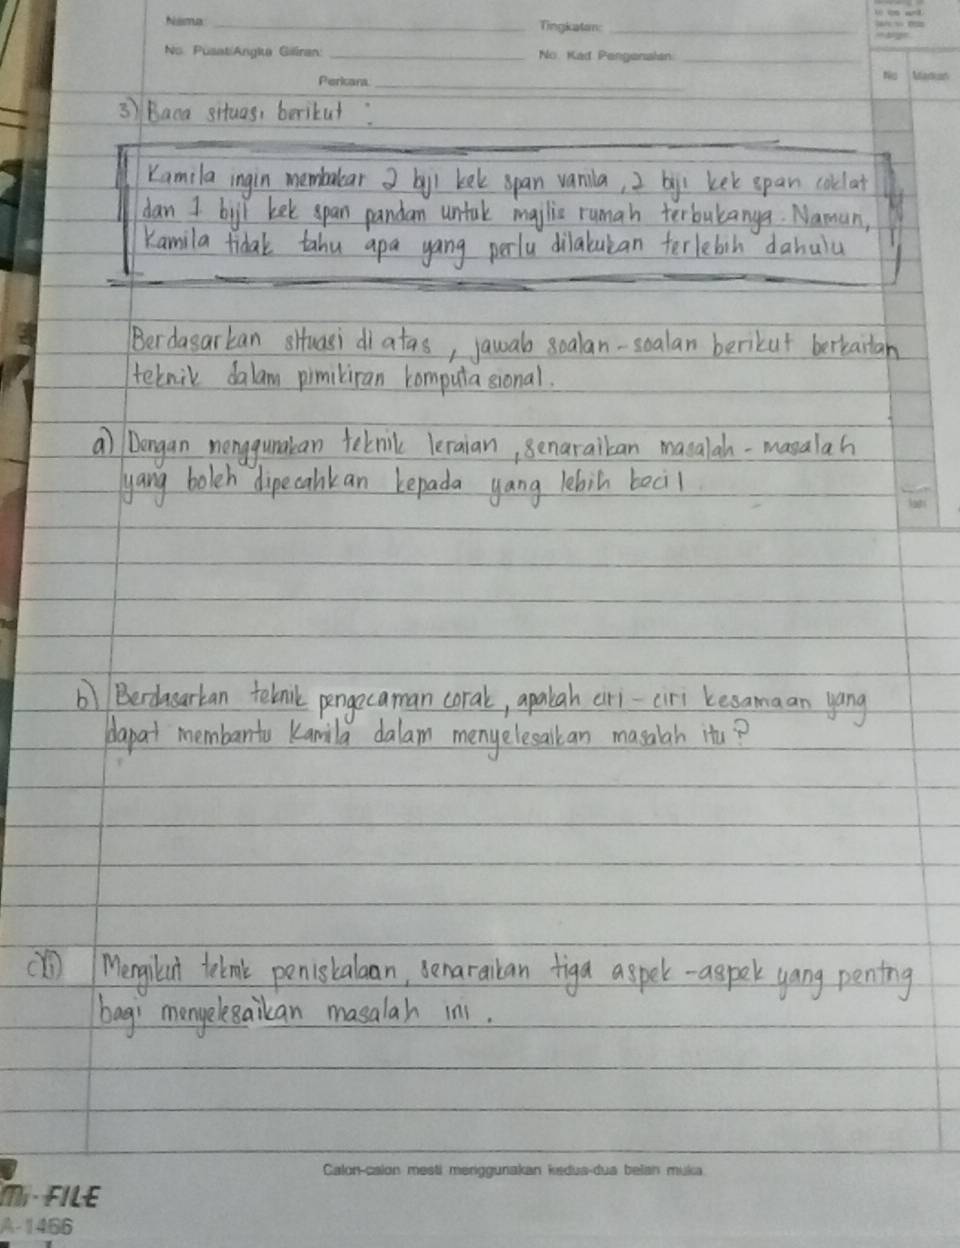 Nama:
Tingkatan:
No. Pusat/Angka Giliran:
No. Kad Pengenalan:
Perkara:
No Markah
3) Baca situasi berikut :
Kamila ingin membakar 2 biji kek span vanila, 2 biji kek span coklat
dan 1 biji kek span pandan untuk majlis rumah terbukanya. Namun,
Kamila tidak tahu apa yang perlu dilakukan terlebih dahulu
Berdasarkan situasi di atas, jawab soalan-soalan berikut berkaitan
teknik dalam pimikiran komputasional.
a) Dengan menggunakan teknik leraian, senaraikan masalah-masalah
yang boleh dipecahkan kepada yang lebih kecil
b) Berdasarkan teknik pengecaman corak, apakah ciri-ciri kesamaan yang
dapat membantu Kamila dalam menyelesaikan masalah itu?
c)(i) Mengikut teknik peniskalaan, senaraikan tiga aspek-aspek yang penting
bagi menyelesaikan masalah ini.
Calon-calon mesti menggunakan kedua-dua belah muka
FILE
A-1466